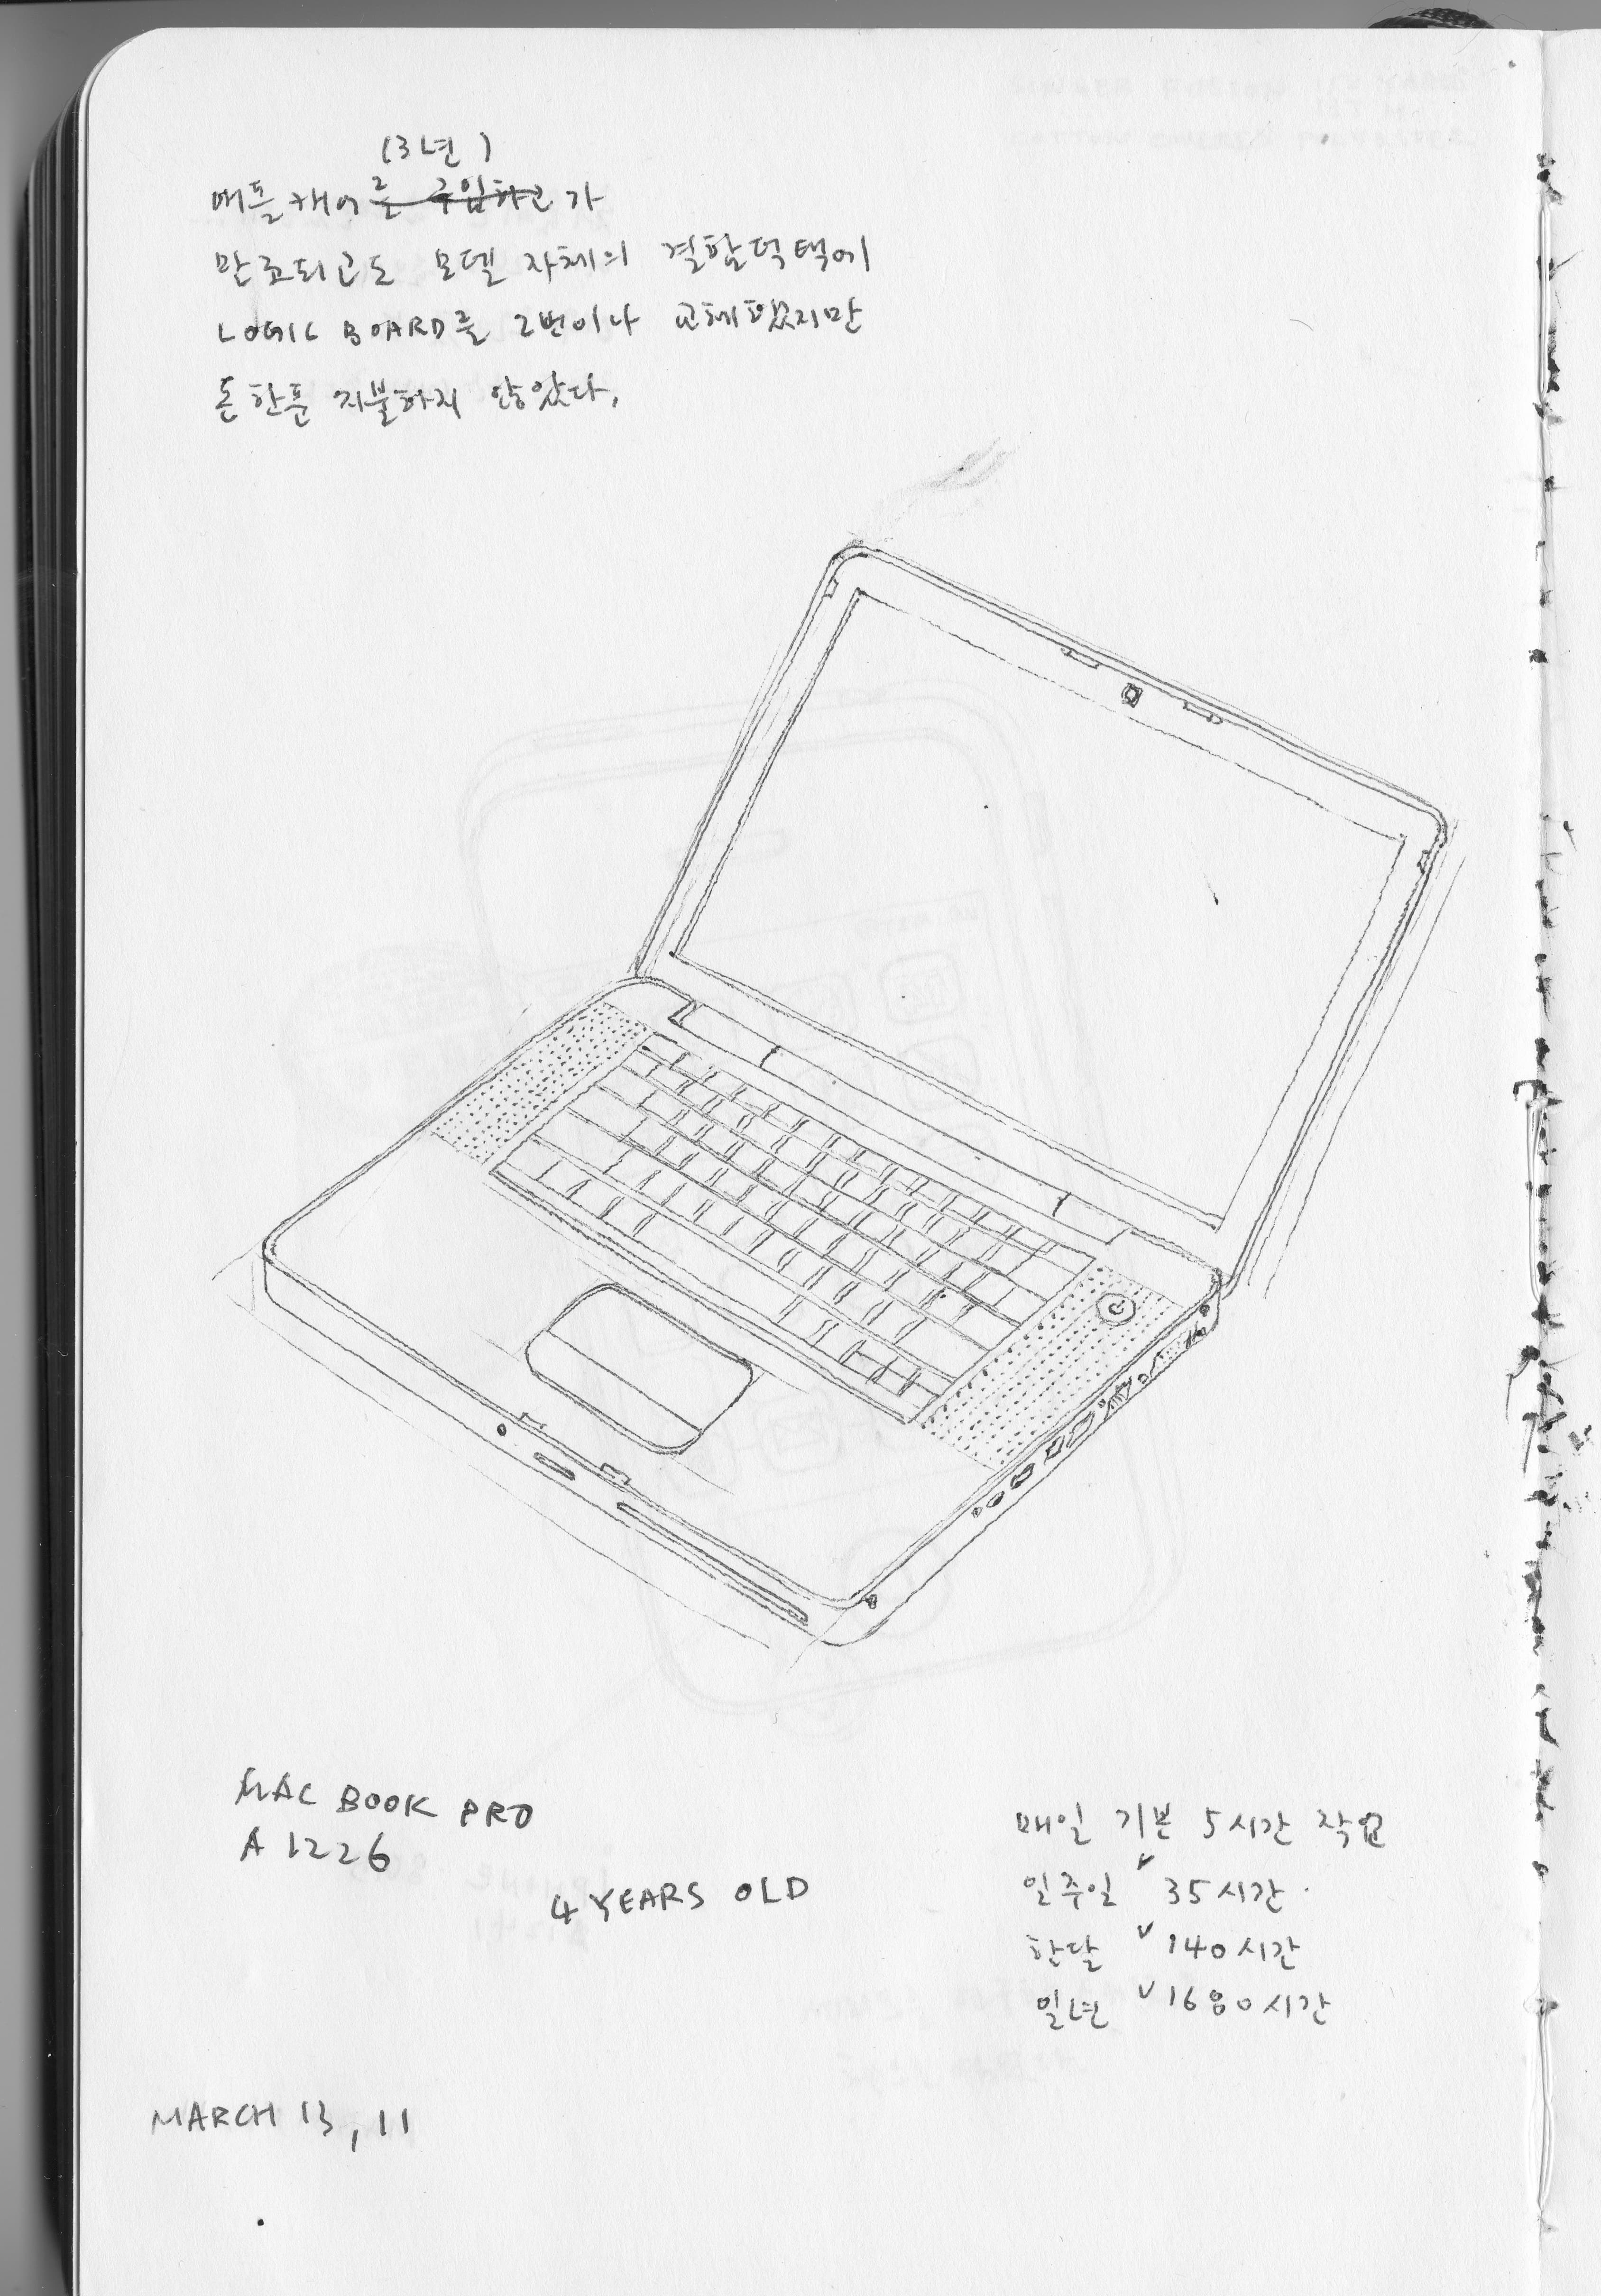 (3년)
애플캐어를 구입하고가
만료되고도 모델 자체의 결함덕택에
LOGIC BOARD를 2번이나 교체했지만
돈한푼 지불하지 않았다.
MAC BOOK PRO
A1226
4 YEARS OLD
매일 기본 5시간 작업
일주일 35시간
한달 140시간
일년 1680시간
MARCH 13, 11